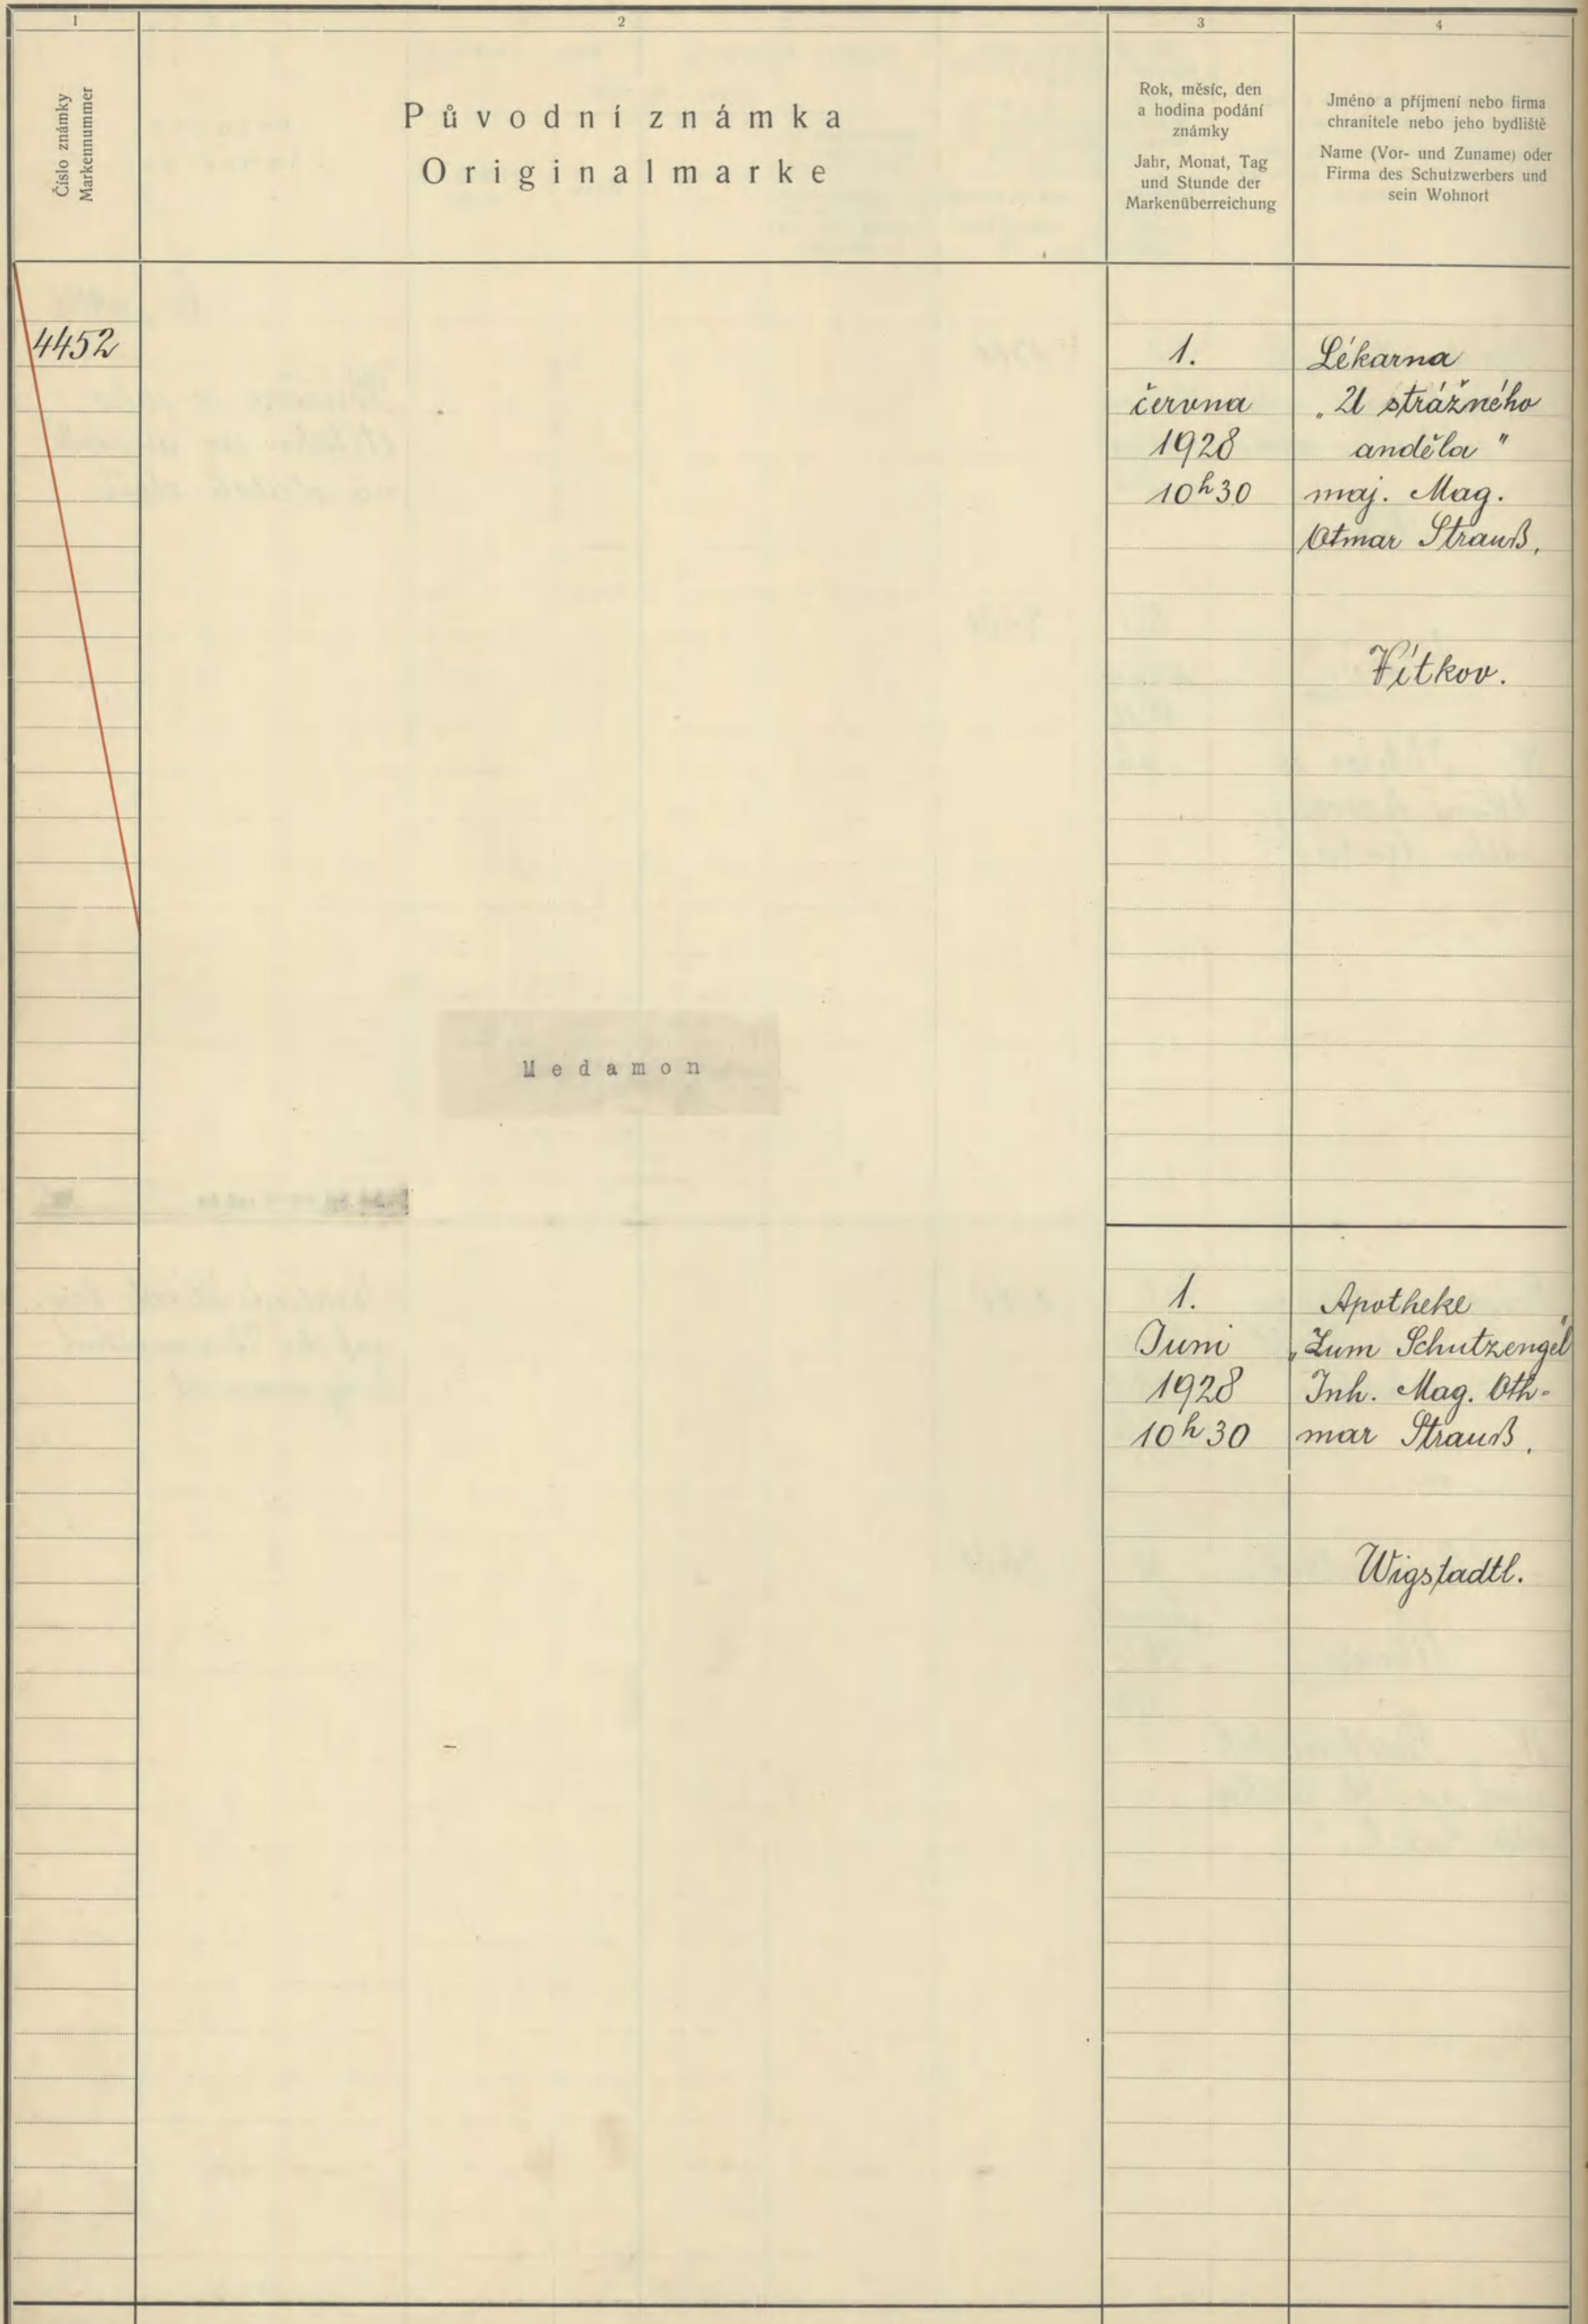 1
2
3
4
Číslo známky
Markennummer
Původní známka
Originalmarke
Rok, měsíc, den
a hodina podání
známky
Jahr, Monat, Tag
und Stunde der
Markenüberreichung
Jméno a příjmení nebo firma
chranitele nebo jeho bydliště
Name (Vor- und Zuname) oder
Firma des Schutzwerbers und
sein Wohnort
4452
1.
června
1928
10h30
Lékarna
„U strážného
anděla"
maj. Mag.
Otmar Strauß,
Vítkov.
Medamon
1.
Juni
1928
10h30
Apotheke
„Zum Schutzengel"
Inh. Mag. Oth-
mar Strauß,
Wigstadtl.